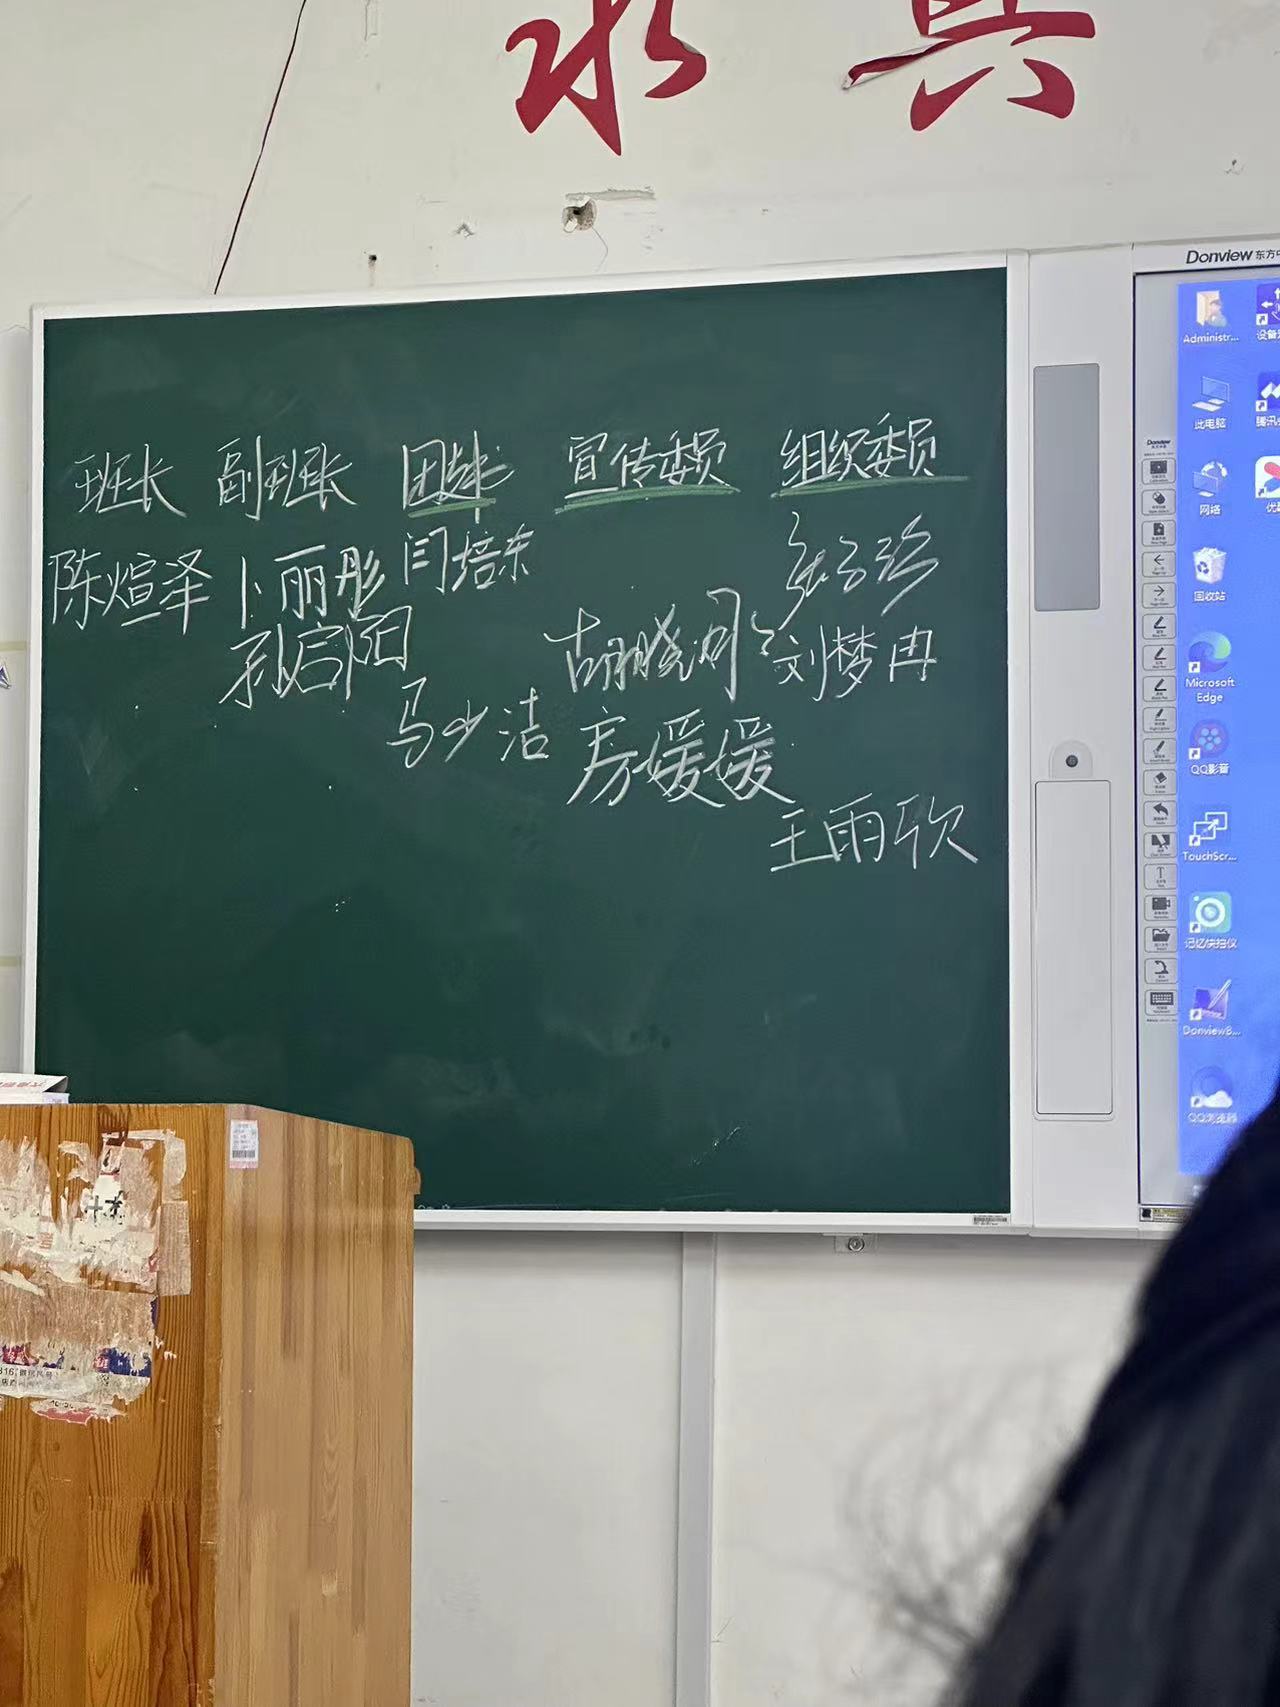 求 真
Donview 东方中
班长 副班长 团支书 宣传委员 组织委员
陈煊泽 卜丽彤 闫培东
孙启阳
马少洁
胡晓月
房媛媛
刘梦冉
王雨欣
Administr...
此电脑
网络
回收站
Microsoft
Edge
QQ影音
TouchScr...
记忆快拍仪
DonviewB...
QQ浏览器